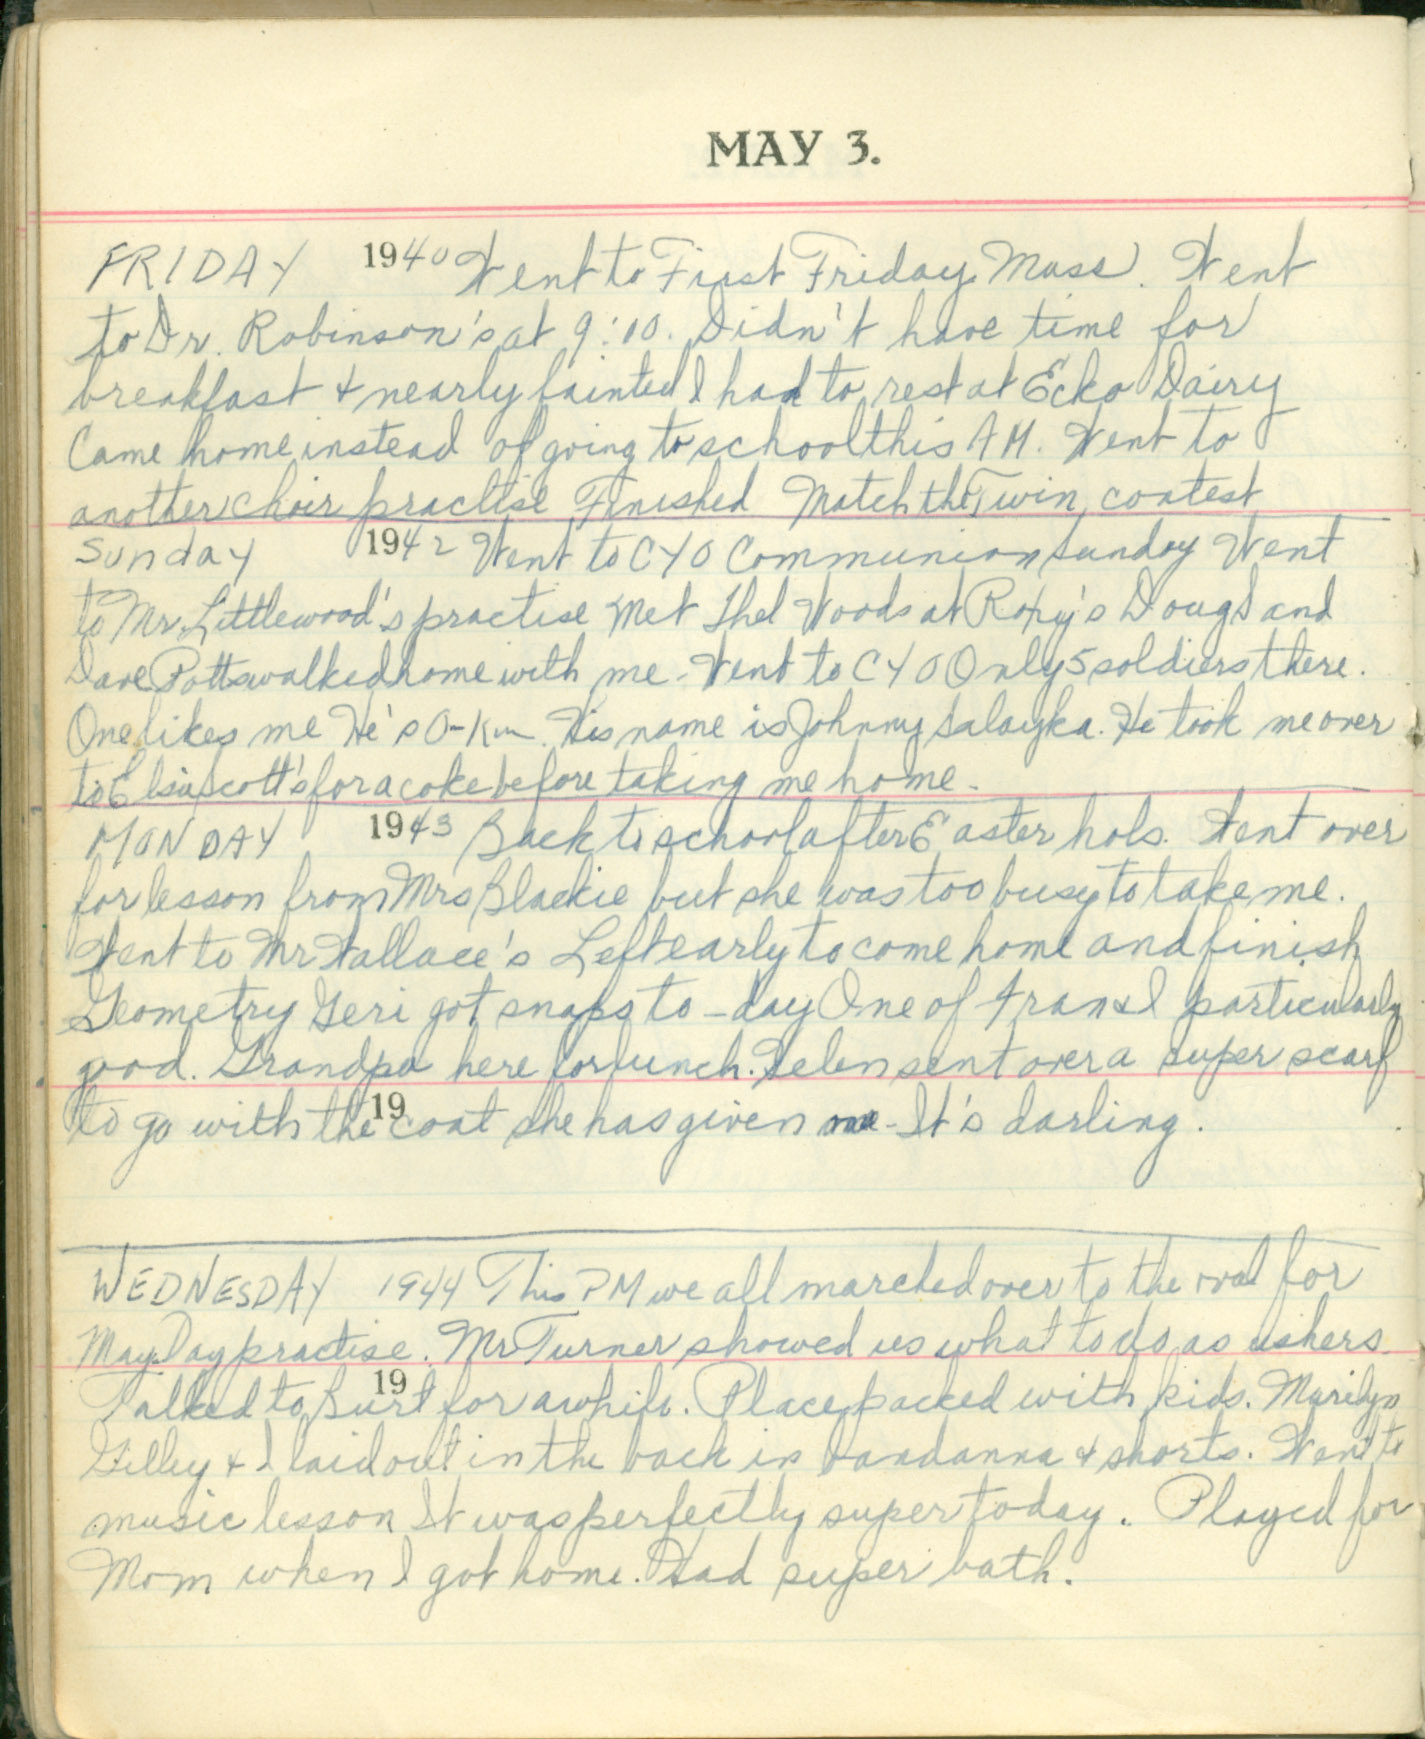 MAY 3.
FRIDAY 1940 Went to First Friday Mass. Went
to Dr. Robinson's at 9:10. Didn't have time for
breakfast & nearly fainted I had to rest at Ecko Dairy
Came home instead of going to school this AM. Went to
another choir practise Finished Match the Twin contest
Sunday 1942 Went to CYO Communion Sunday Went
to Mr. Littlewood's practise Met Thel Woods at Roxy's Doug I and
Dave Potts walked home with me - Went to CYO Only 5 soldiers there.
One likes me He's O-K. His name is Johnny Salayka. He took me over
to Elsie Scott's for a coke before taking me home -
MONDAY 1943 Back to school after Easter hols. Went over
for lesson from Mrs Blackie but she was too busy to take me.
Went to Mr Wallace's Left early to come home and finish
Geometry Geri got snaps to-day One of Fran & I particularly
good. Grandpa here for lunch. Helen sent over a super scarf
to go with the 19 coat she has given me - It's darling.
WEDNESDAY 1944 This PM we all marched over to the oval for
May Day practise. Mr Turner showed us what to do as ushers.
19
Talked to Burt for awhile. Place packed with kids. Marilyn
Gilley & I laid out in the back in bandanna & shorts. Went to
music lesson It was perfectly super today. Played for
Mom when I got home. Had super bath.